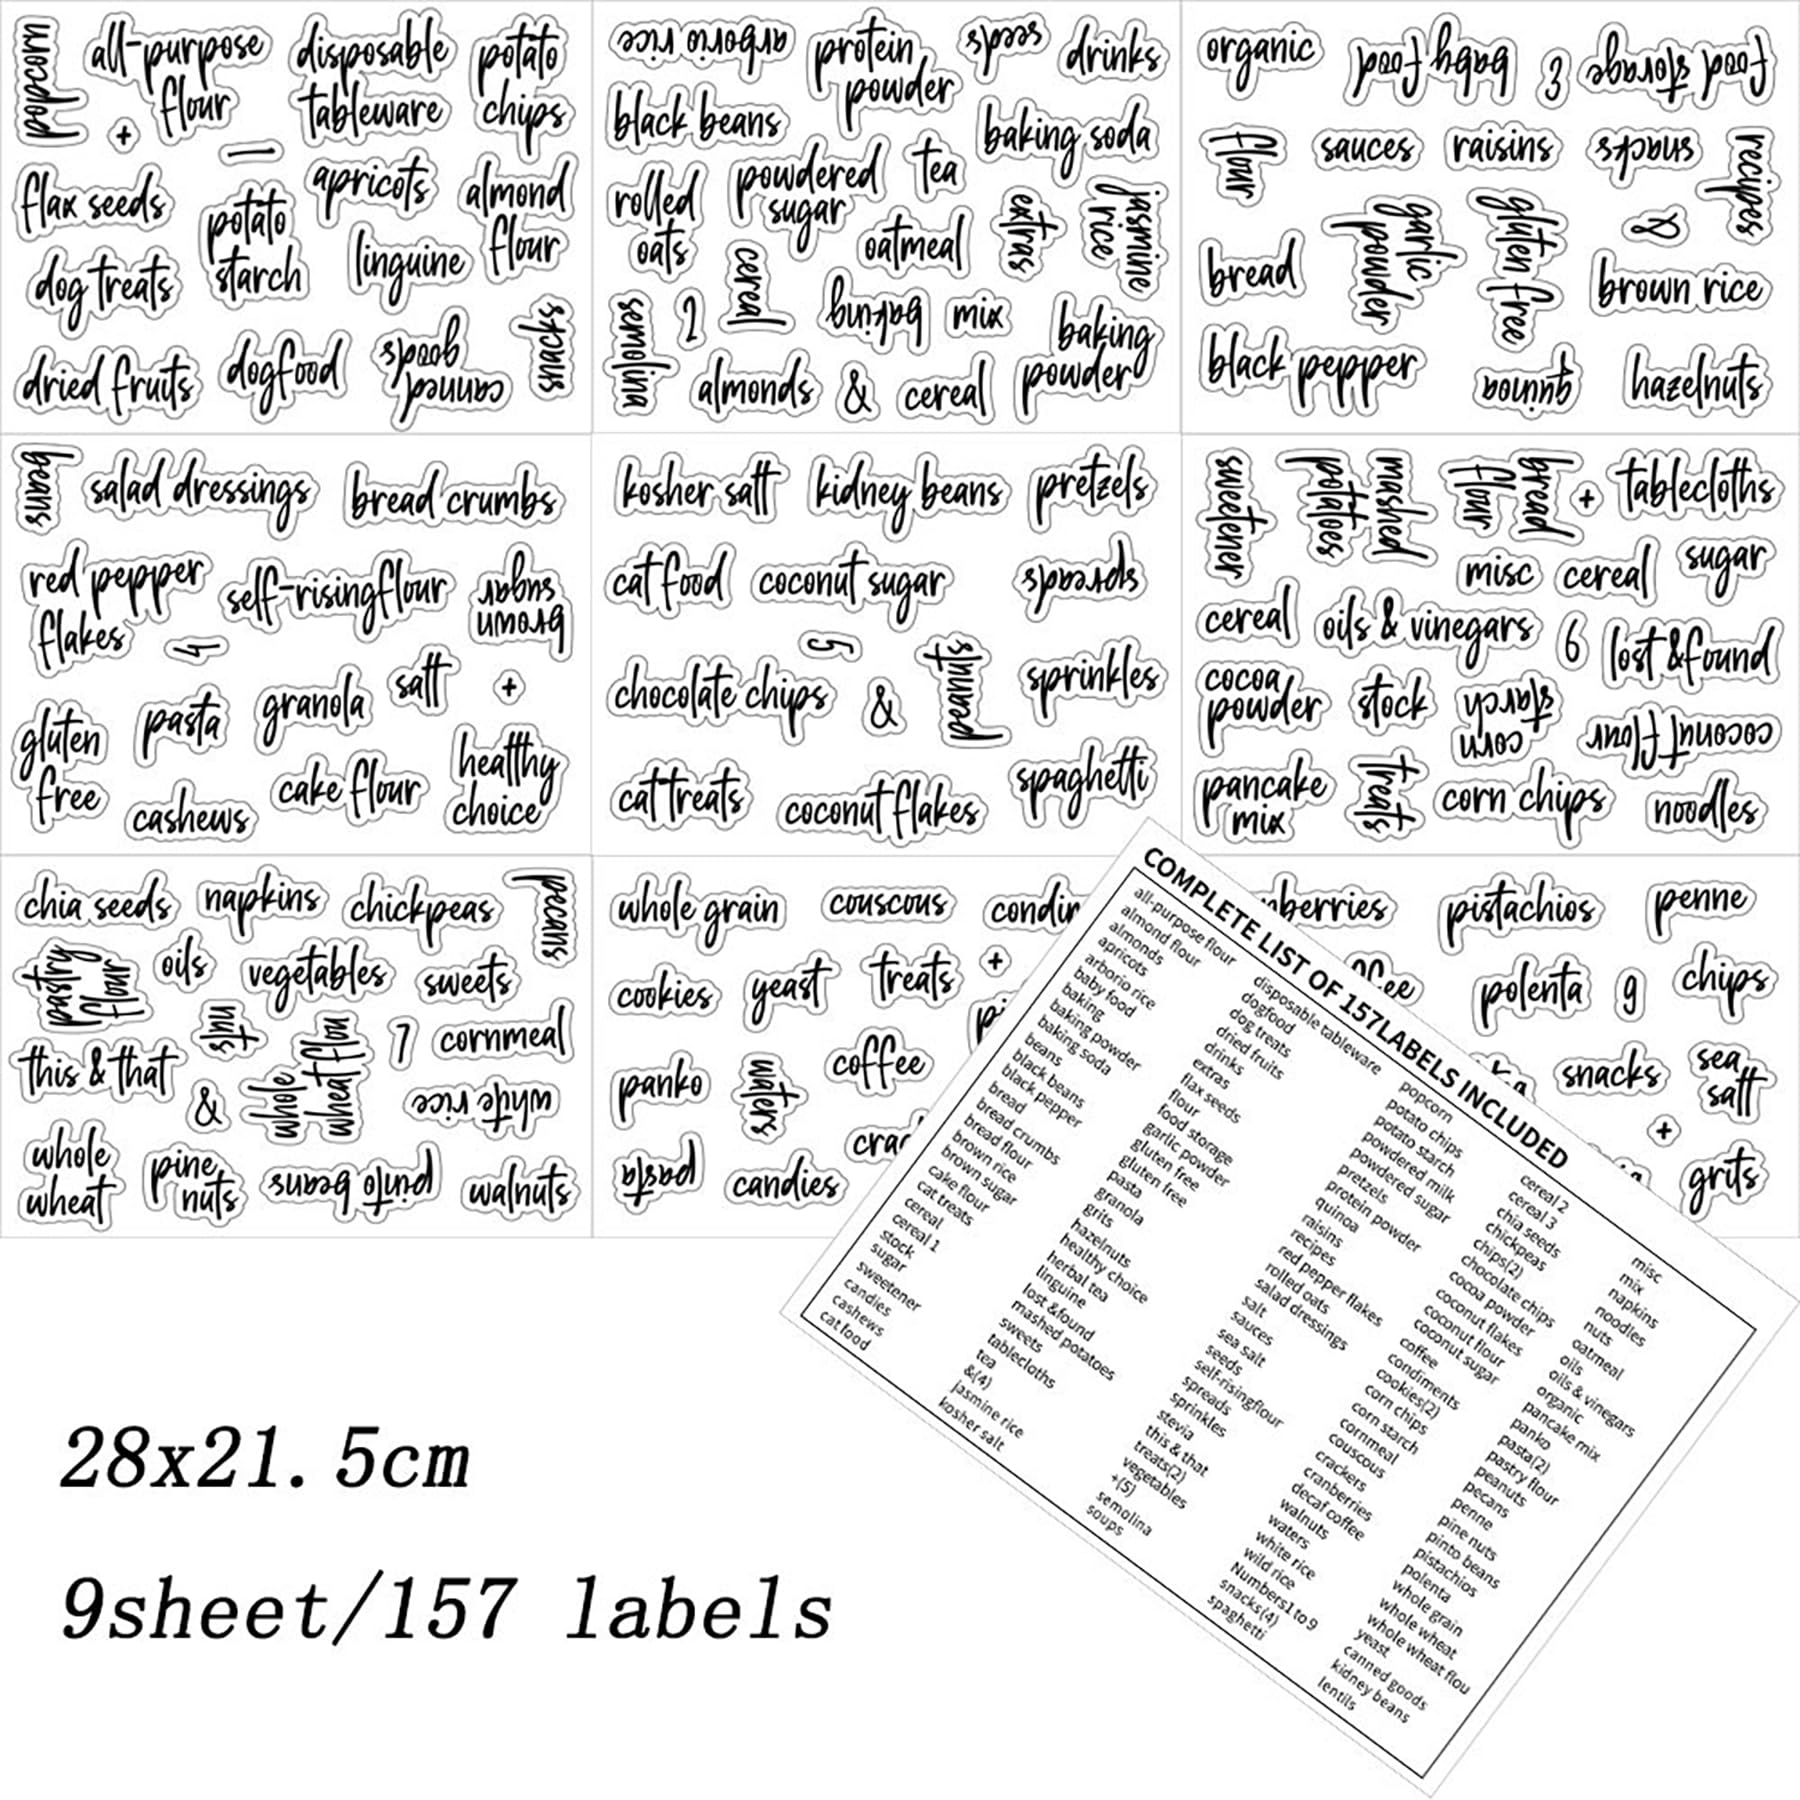 popcorn
all-purpose
flour
+
disposable
tableware
potato
chips
1
flax seeds
potato
starch
apricots
almond
flour
dog treats
linguine
dried fruits
dogfood
canned
goods
snacks
arborio rice
protein
powder
seeds
drinks
black beans
baking soda
rolled
oats
powdered
sugar
tea
extras
jasmine
rice
cereal
oatmeal
semolina
2
baking
mix
baking
powder
almonds
&
cereal
organic
baby food
3
food storage
flour
sauces
raisins
snacks
recipes
bread
garlic
powder
gluten free
&
brown rice
black pepper
quinoa
hazelnuts
beans
salad dressings
bread crumbs
red pepper
flakes
self-risingflour
brown
sugar
4
gluten
free
pasta
granola
salt
+
cashews
cake flour
healthy
choice
kosher salt
kidney beans
pretzels
cat food
coconut sugar
spreads
5
chocolate chips
&
peanuts
sprinkles
cat treats
coconut flakes
spaghetti
sweetener
mashed
potatoes
bread
flour
+
tablecloths
misc
cereal
sugar
cereal
oils & vinegars
6
lost &found
cocoa
powder
stock
corn
starch
coconut flour
pancake
mix
treats
corn chips
noodles
chia seeds
napkins
chickpeas
pecans
pastry
flour
oils
vegetables
sweets
nuts
this & that
whole
wheat flou
7
cornmeal
&
white rice
whole
wheat
pine
nuts
pinto beans
walnuts
whole grain
couscous
condim
cookies
yeast
treats
+
panko
waters
coffee
pasta
candies
crac
nberries
pistachios
penne
polenta
9
chips
snacks
sea
salt
+
grits
COMPLETE LIST OF 157LABELS INCLUDED
all-purpose flour
almond flour
almonds
apricots
arborio rice
baby food
baking
baking powder
baking soda
beans
black beans
black pepper
bread
bread crumbs
bread flour
brown rice
brown sugar
cake flour
cat treats
cereal
cereal 1
stock
sugar
sweetener
candies
cashews
cat food
disposable tableware
dogfood
dog treats
dried fruits
drinks
extras
flax seeds
flour
food storage
garlic powder
gluten free
gluten free
pasta
granola
grits
hazelnuts
healthy choice
herbal tea
linguine
lost &found
mashed potatoes
sweets
tablecloths
tea
&(4)
jasmine rice
kosher salt
popcorn
potato chips
potato starch
powdered milk
powdered sugar
pretzels
protein powder
quinoa
raisins
recipes
red pepper flakes
rolled oats
salad dressings
salt
sauces
sea salt
seeds
self-risingflour
spreads
sprinkles
stevia
this & that
treats(2)
vegetables
+(5)
semolina
soups
cereal 2
cereal 3
chia seeds
chickpeas
chips(2)
chocolate chips
cocoa powder
coconut flakes
coconut flour
coconut sugar
coffee
condiments
cookies(2)
corn chips
corn starch
cornmeal
couscous
crackers
cranberries
decaf coffee
walnuts
waters
white rice
wild rice
Numbers1 to 9
snacks(4)
spaghetti
misc
mix
napkins
noodles
nuts
oatmeal
oils
oils & vinegars
organic
pancake mix
panko
pasta(2)
pastry flour
peanuts
pecans
penne
pine nuts
pinto beans
pistachios
polenta
whole grain
whole wheat
whole wheat flou
yeast
canned goods
kidney beans
lentils
28x21.5cm
9sheet/157 labels